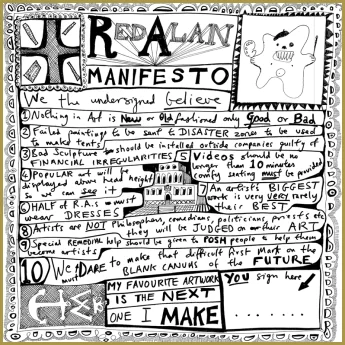 RED ALAN
MANIFESTO
We the undersigned believe
1 Nothing in Art is New or Old fashioned only Good or Bad
2 Failed paintings to be sent to DISASTER zones to be used
to make tents
3 Bad Sculpture should be installed outside companies guilty of
FINANCIAL IRREGULARITIES
5 Videos should be no
longer than 10 minutes
comfy seating must be provided
4 Popular art will
displayed above head height
so we can see it
7 An artist's BIGGEST
work is very very rarely
their BEST
6 HALF of R.A.s must
wear DRESSES
8 Artists are NOT Philosophers, comedians, politicians, priests etc
they will be JUDGED on their ART
9 Special REMEDIAL help should be given to POSH people to help them
become artists
10 We must DARE to make that difficult first mark on the
BLANK CANVAS of the FUTURE
MY FAVOURITE ARTWORK
IS THE NEXT
ONE I MAKE
YOU sign here